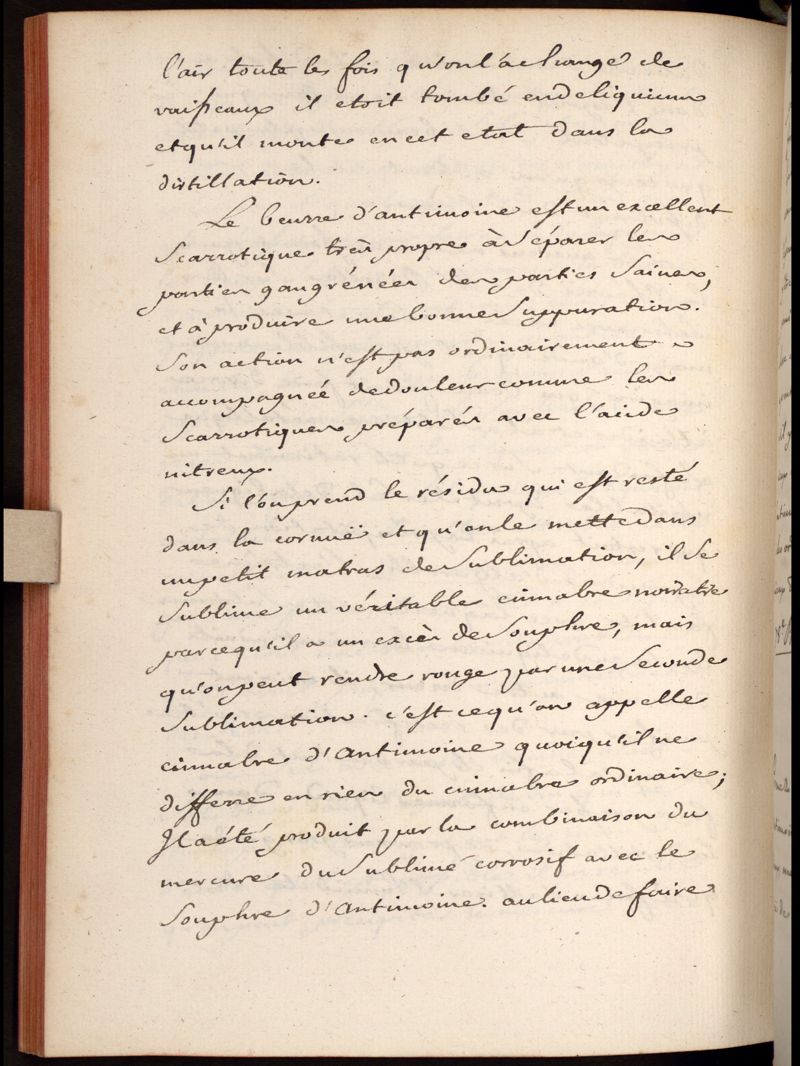 l'air toute les fois qu'on l'a changé de
vaisseaux il etoit tombé en deliquium
et qu'il monte en cet etat dans la
distillation.
Le beurre d'antimoine est un excellent
Scarrotique très propre à Séparer les
parties gangrénées des parties Saines,
et à produire une bonne Suppuration.
Son action n'est pas ordinairement
accompagnée de douleur comme les
Scarrotiques préparés avec l'acide
nitreux.
Si l'on prend le résidu qui est resté
dans la cornuë et qu'on le mette dans
un petit matras de Sublimation, il Se
Sublime un véritable cinnabre noiratre
parcequ'il a un excès de Souphre, mais
qu'on peut rendre rouge par une Seconde
Sublimation. c'est ce qu'on appelle
cinnabre d'Antimoine quoiqu'il ne
differre en rien du cinnabre ordinaire;
Il a été produit par la combinaison du
mercure du Sublimé corrosif avec le
Souphre d'Antimoine. au lieu de faire